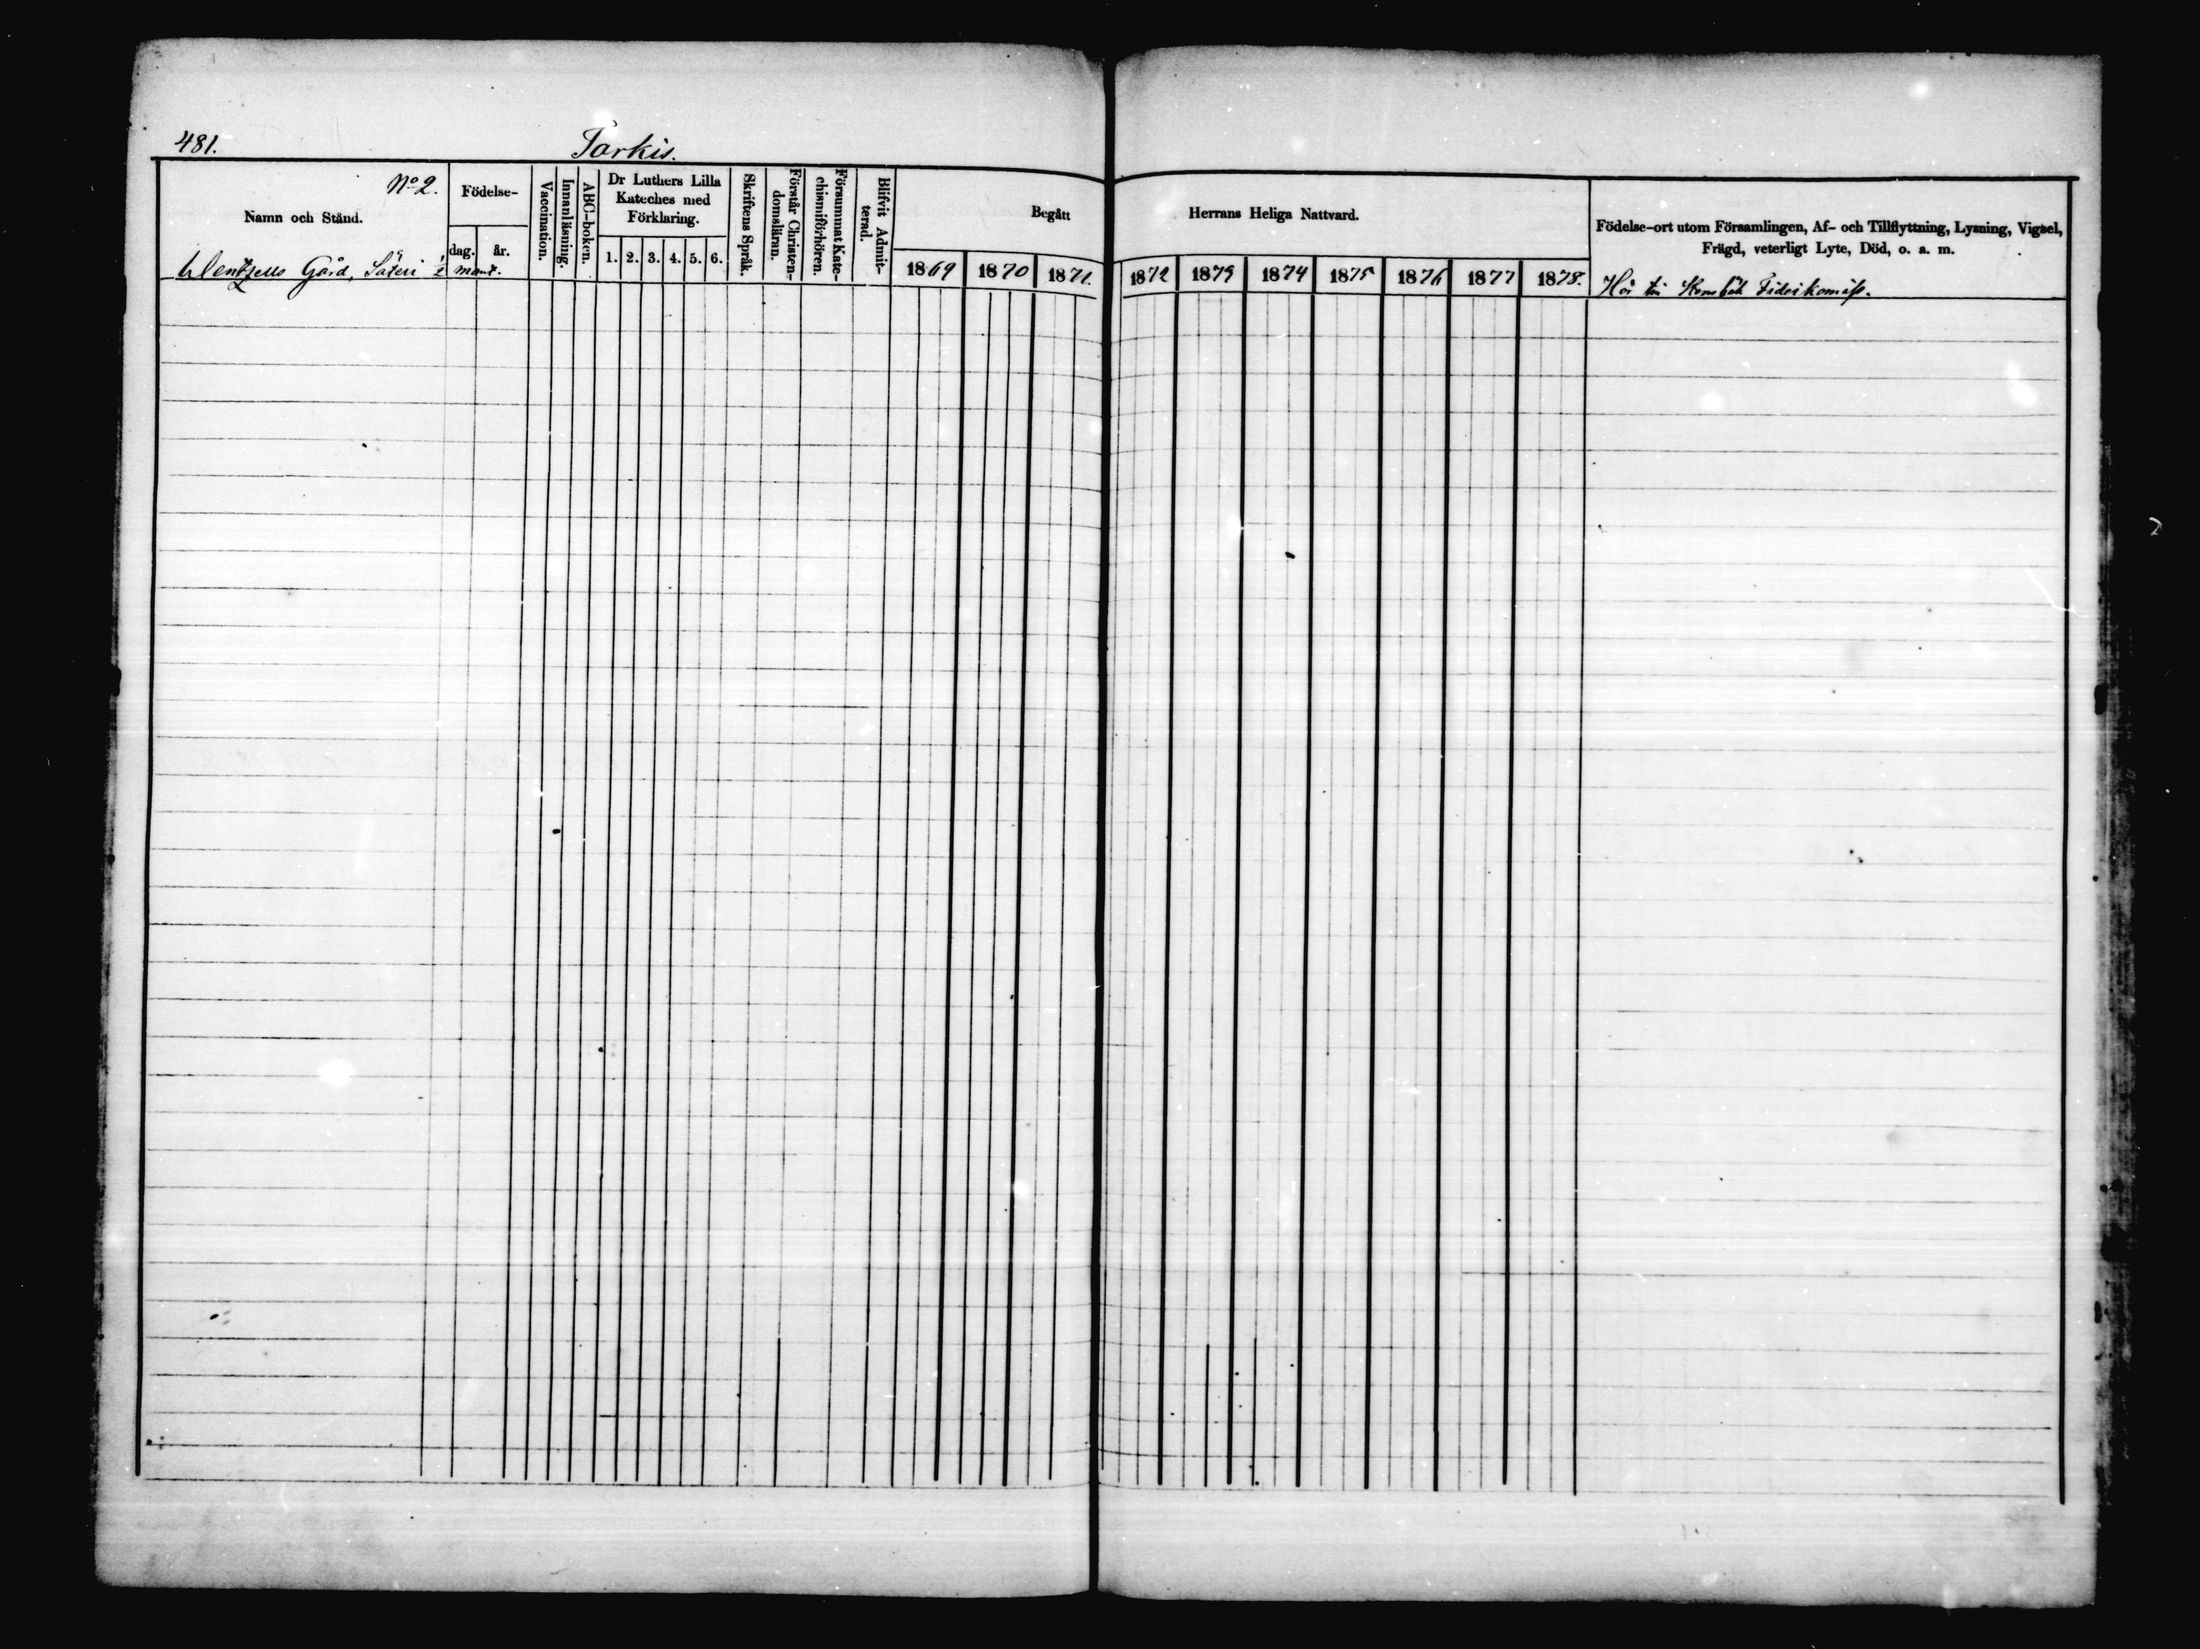 481.
Tarkis.
No 2.
Namn och Stånd.
Födelse-
dag.
år.
Vaccination.
Innanläsning.
ABC-boken.
Dr Luthers Lilla
Kateches med
Förklaring.
1. 2. 3. 4. 5. 6.
Skriftens Språk.
Förstår Christen-
domsläran.
Försummat Kate-
chismiförhören.
Blifvit Admit-
terad.
Begått
Herrans Heliga Nattvard.
1869 1870 1871. 1872 1873 1874 1875 1876 1877 1878.
Födelse-ort utom Församlingen, Af- och Tillflyttning, Lysning, Vigsel,
Frägd, veterligt Lyte, Död, o. a. m.
Wentzells Gård, Säteri mant.
Hör till Fideikomiss.